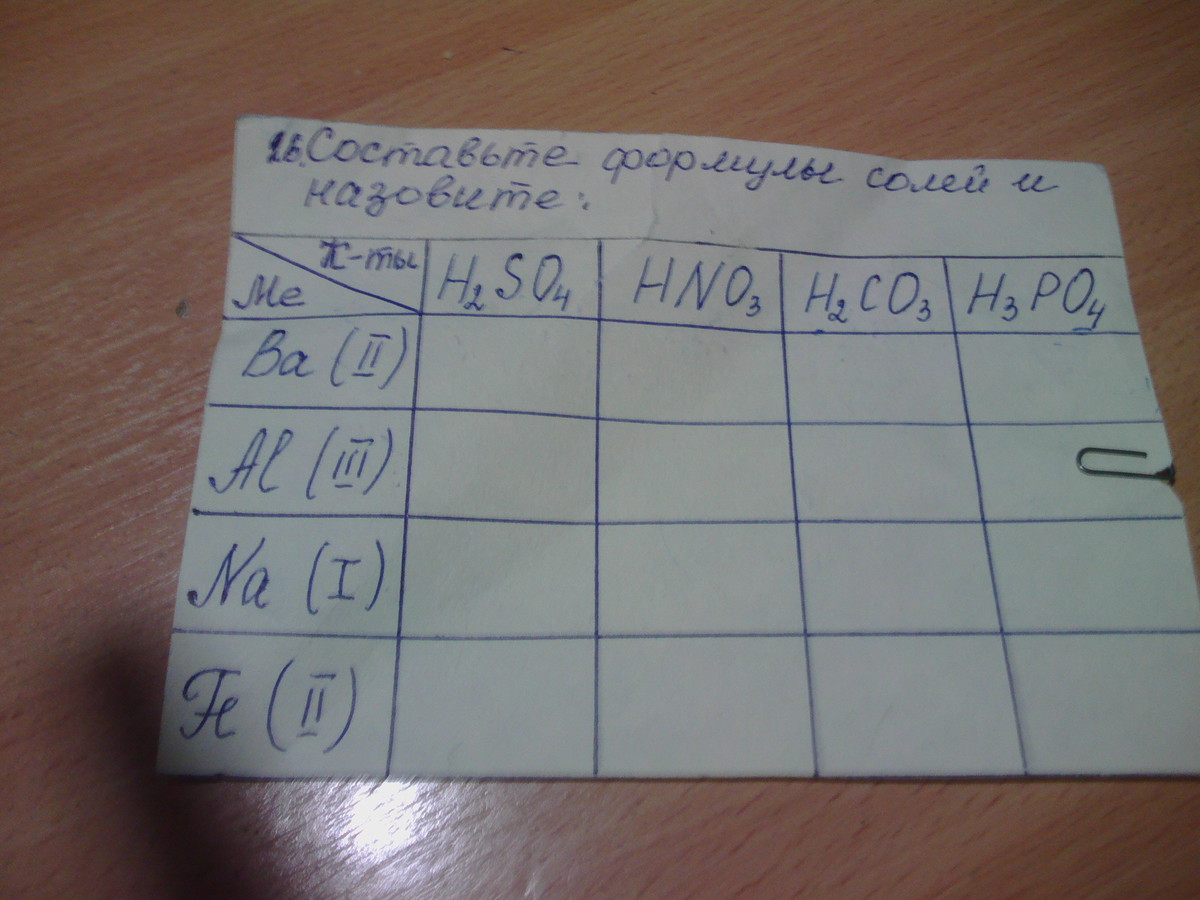 16. Составьте формулы солей и
назовите:
К-ты
Ме
H₂SO₄ HNO₃ H₂CO₃ H₃PO₄
Ba (II)
Al (III)
Na (I)
Fe (II)